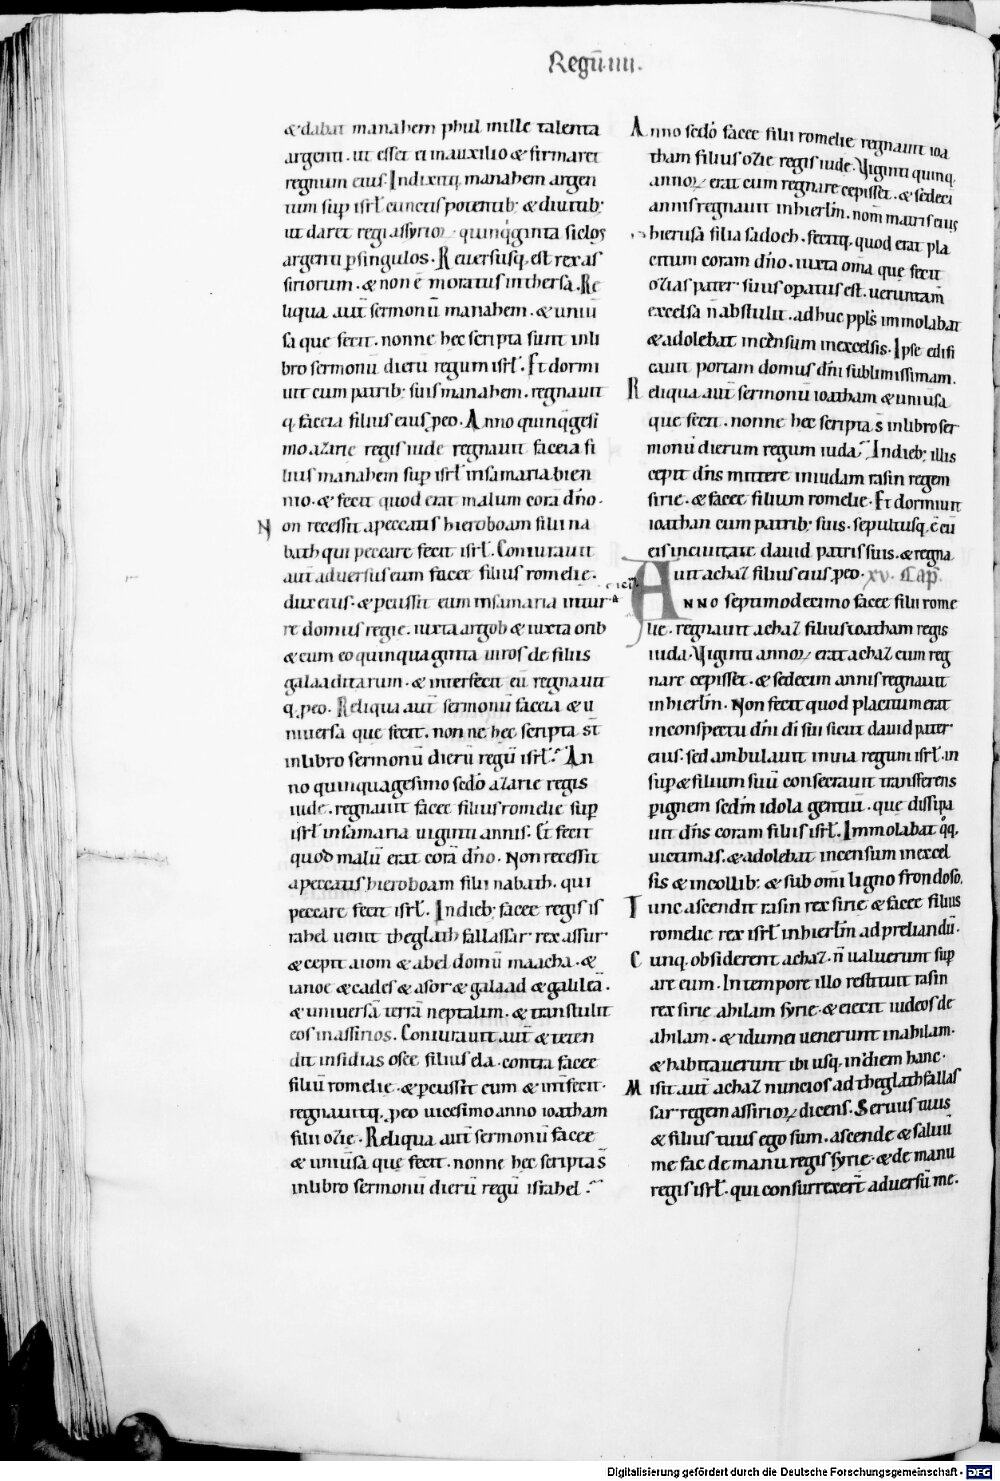 Regū·iiii·
& dabat manahem phul mille talenta
argenti. ut esset ei in auxilio & firmaret
regnum eius. Indixitq, manahem argen
tum sup isrł cunctis potentib; & divitib;
ut daret regi assyrioꝝ. quinq̇ginta siclos
argenti ꝑ singulos. Reuersusq, est rex as
siriorum. & non ē moratus in thersa. Re
liqua aut̄ sermonū manahem. & uniū
sa que fecit. nonne hec scripta sunt in li
bro sermonū dierū regum isrł. Et dormi
uit cum patrib; suis manahem. regnauit
q, faceia filius eius ꝓ eo. Anno quinq̇gesi
mo azarie regis iude regnauit faceia fi
lius manahem sup isrł in samaria bien
nio. & fecit quod erat malum corā dn̄o.
Non recessit a peccatis hieroboam filii na
bath qui peccare fecit isrł. Coniurauit
aut̄ aduersus eum facee filius romelie.
dux eius. & ꝑcussit eum in samaria in tur
re domus regie. iuxta argob & iuxta orib
& cum eo quinquaginta uiros de filiis
galaaditarum. & interfecit eū regnauit
q, ꝓ eo. Reliqua aut̄ sermonū faceia & u
niuersa que fecit. nonne hec scripta st̄
in libro sermonū dierū regū isrł. An
no quinquagesimo sc̄do azarie regis
iude. regnauit facee filius romelie sup
isrł in samaria uiginti annis. Et fecit
quod malū erat corā dn̄o. Non recessit
a peccatis hieroboam filii nabath. qui
peccare fecit isrł. In dieb; facee regis is
rahel uenit theglath fallassar rex assur
& cepit aiom & abel domū maacha. &
ianoe & cades & asor & galaad & galileā.
& uniuersā terrā neptalim. & transtulit
eos in assirios. Coniurauit aut̄ & teten
dit insidias osee filius ela. contra facee
filiū romelie. & ꝑcussit eum & int̄fecit.
regnauitq, ꝓ eo uicesimo anno ioatham
filii ozie. Reliqua aut̄ sermonū facee
& uniūsa que fecit. nonne hec scripta s̄
in libro sermonū dierū regū israhel.
Anno sc̄do facee filii romelie regnauit ioa
tham filius ozie regis iude. Viginti quinq,
annoꝝ erat cum regnare cepisset. & sedeci
annis regnauit in hierlm̄. nom̄ matris eius
hierusa filia sadoch. fecitq, quod erat pla
citum coram dn̄o. iuxta om̄a que fecit
ozias pater suus oꝑatus est. ueruntam̄
excelsa n̄ abstulit. adhuc ppl̄s immolabat
& adolebat incensum in excelsis. Ipse edifi
cauit portam domus dn̄i sublimissimam.
Reliqua aut̄ sermonū ioatham & uniūsa
que fecit. nonne hec scripta s̄ in libro ser
monū dierum regum iuda. In dieb; illis
cepit dn̄s mittere in iudam rasin regem
sirie. & facee filium romelie. Et dormiuit
ioathan cum patrib; suis. sepultusq, ē cū
eis in ciuitate dauid patris suis. & regna
uit achaz filius eius ꝓ eo. xv. Cap̄.
ANNO septimodecimo facee filii rome
lie. regnauit achaz filius ioatham regis
iuda. Viginti annoꝝ erat achaz cum reg
nare cepisset. & sedecim annis regnauit
in hierlm̄. Non fecit quod placitum erat
in conspectu dn̄i di sui sicut dauid pater
eius. sed ambulauit in uia regum isrł. in
sup & filium suū consecrauit transferens
ꝑ ignem sedm̄ idola gentiū. que dissipa
uit dn̄s coram filiis isrł. Immolabat q̊q,
uictimas. & adolebat incensum in excel
sis & in collib; & sub om̄i ligno frondoso.
Tunc ascendit rasin rex sirie & facee filius
romelie rex isrł in hierlm̄ ad preliandū.
Cunq, obsiderent achaz. n̄ ualuerunt sup
are eum. In tempore illo restituit rasin
rex sirie ahilam syrie. & eiecit iudeos de
ahilam. & idumei uenerunt in ahilam.
& habitauerunt ibi usq, in diem hanc.
Misit aut̄ achaz nuncios ad theglathfallas
sar regem assirioꝝ dicens. Seruus tuus
& filius tuus ego sum. ascende & saluū
me fac de manu regis syrie. & de manu
regis isrł. qui consurrexert̄ aduersū me.
Digitalisierung gefördert durch die Deutsche Forschungsgemeinschaft - DFG